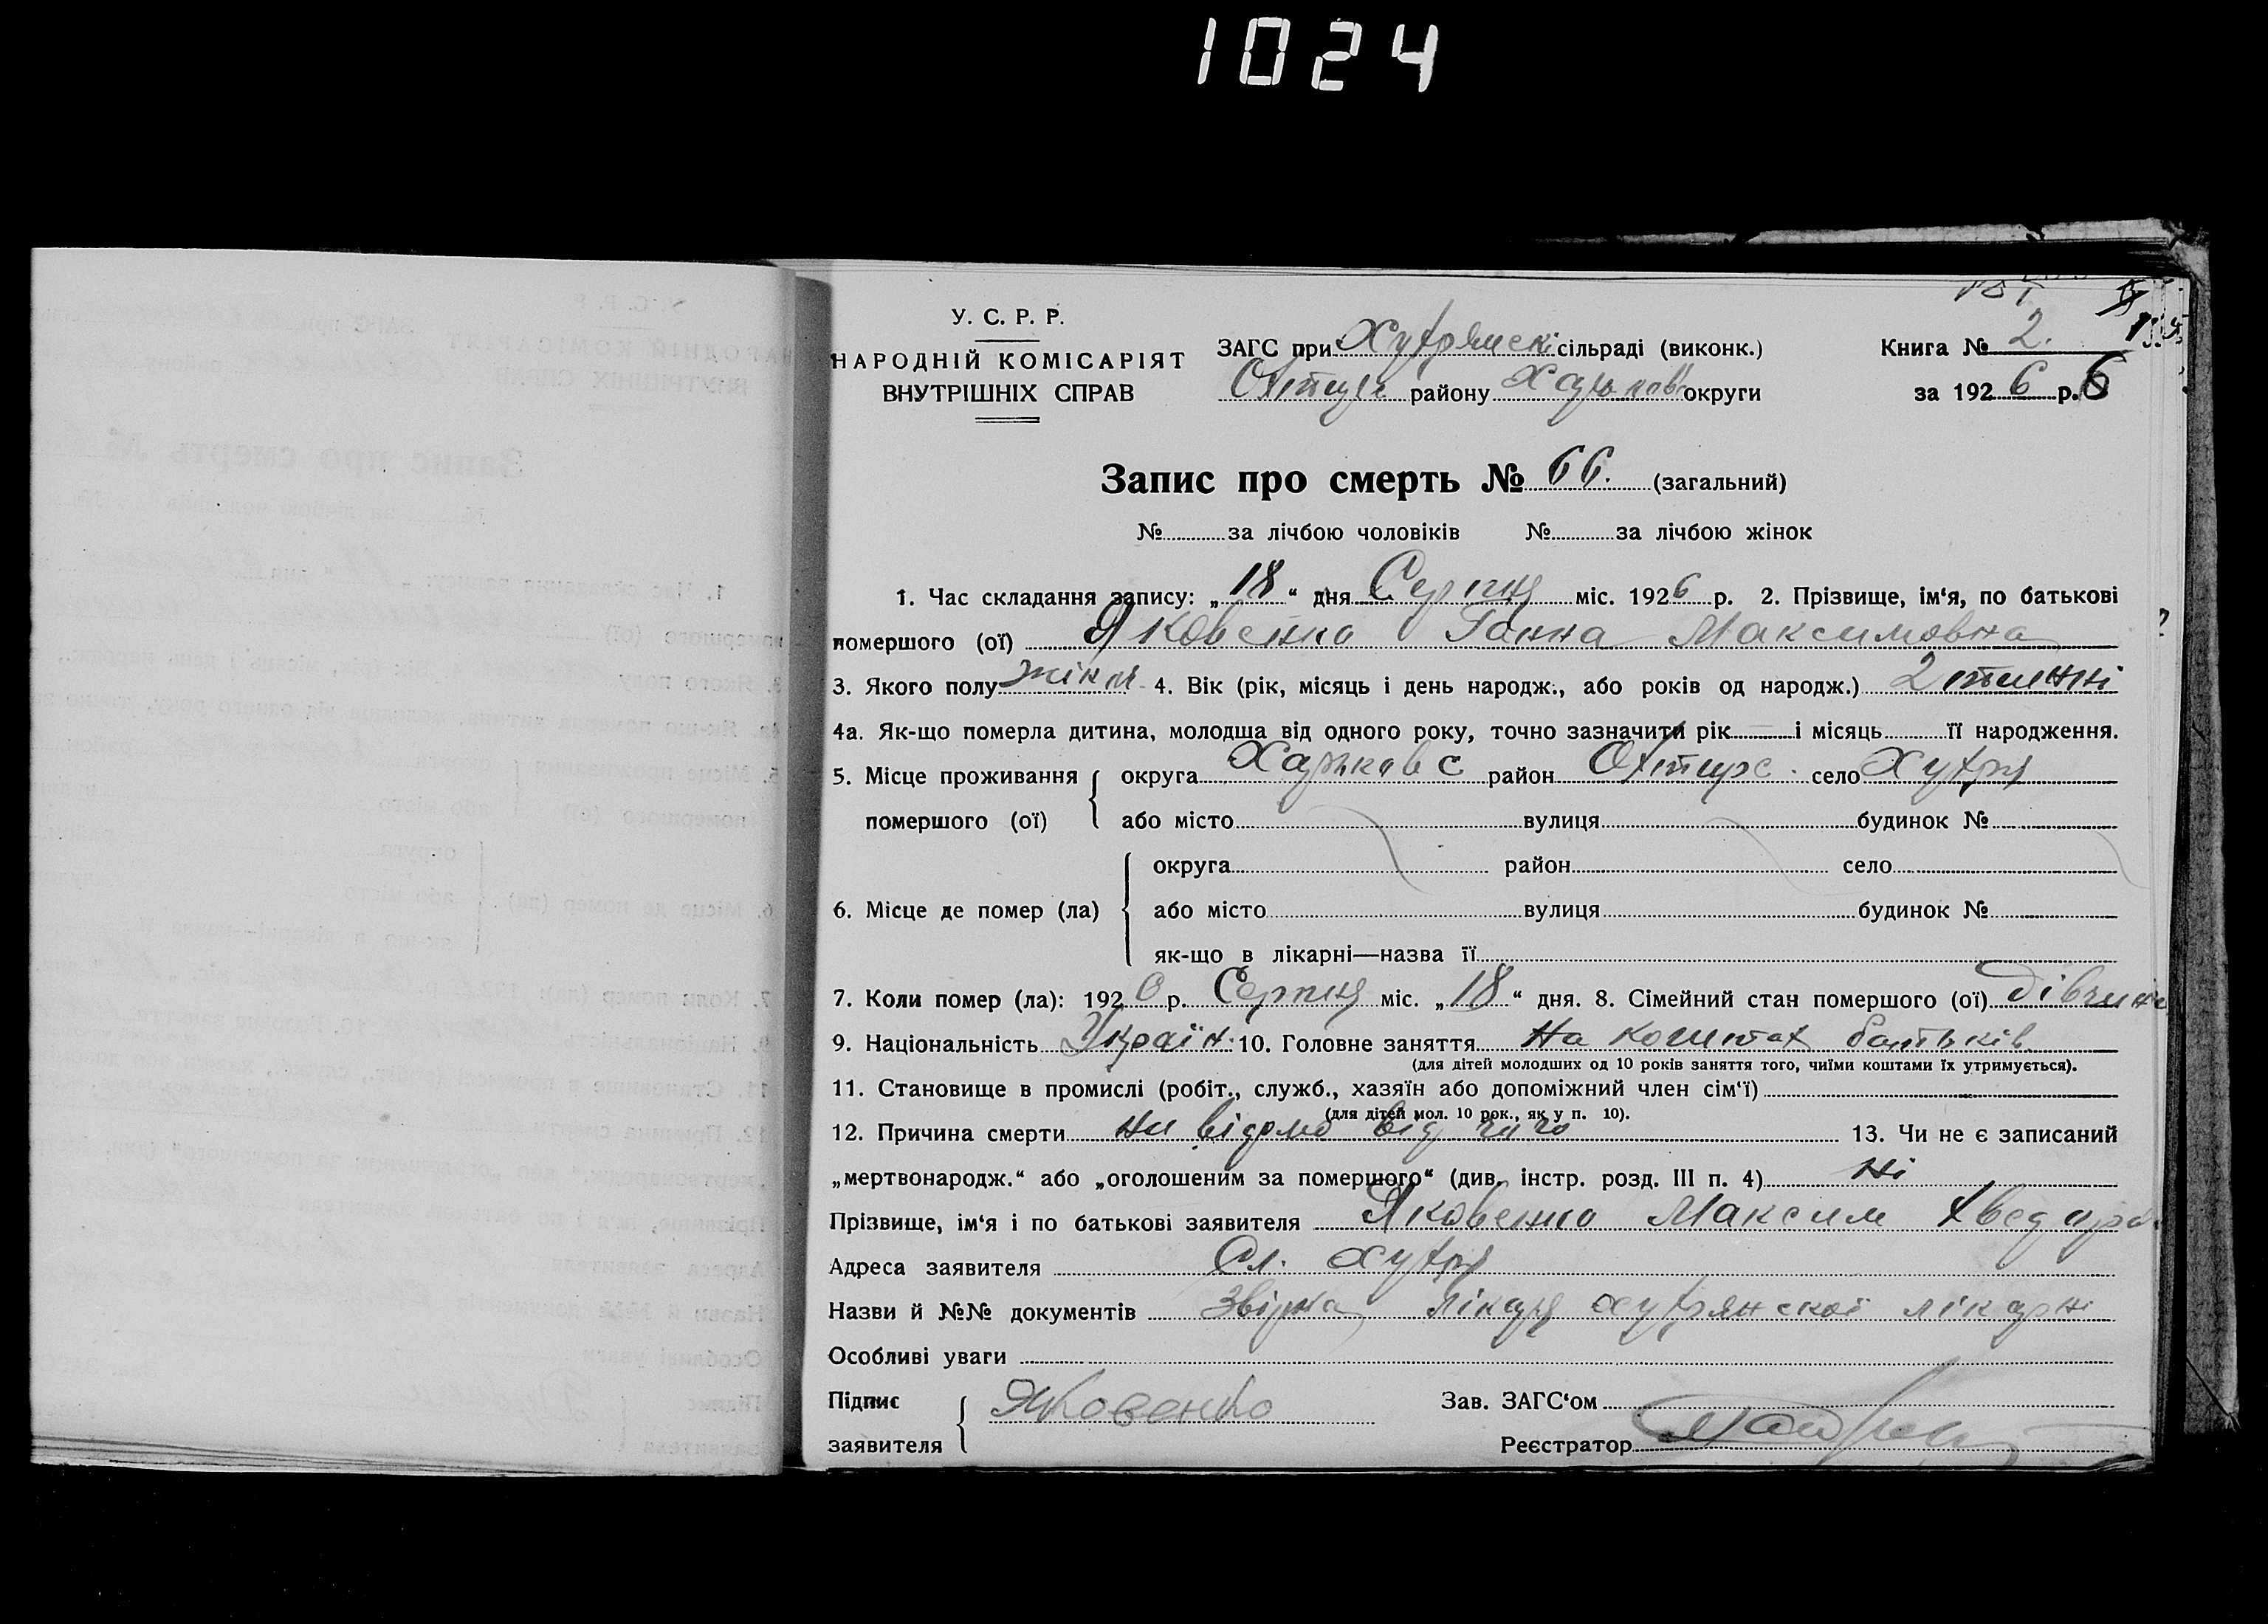 1024
У. С. Р. Р.
НАРОДНІЙ КОМІСАРІЯТ
ВНУТРІШНІХ СПРАВ
ЗАГС при Хухрянскі сільраді (виконк.)
Охтир район у Харьков округи
Книга № 2.
за 1926 р. 6
Запис про смерть № 66. (загальний)
№ за лічбою чоловіків № за лічбою жінок
1. Час складання запису: „18“ дня Серпня міс. 1926 р. 2. Прізвище, ім‘я, по батькові
помершого (ої) Яковенко Ганна Максимовна
3. Якого полу жіноч. 4. Вік (рік, місяць і день народж., або років од народж.) 2 тижні
4а. Як-що померла дитина, молодша від одного року, точно зазначити рік і місяць її народження.
5. Місце проживання помершого (ої) округа Харьковс район Охтирс. село Хухря
або місто вулиця будинок №
6. Місце де помер (ла) округа район село
або місто вулиця будинок №
як-що в лікарні—назва її
7. Коли помер (ла): 1926 р. Серпня міс. „18“ дня. 8. Сімейний стан помершого (ої) дівчина
9. Національність Україн. 10. Головне заняття На коштах батьків
(для дітей молодших од 10 років заняття того, чиїми коштами їх утримується).
11. Становище в промислі (робіт., служб., хазяїн або допоміжний член сім‘ї)
(для дітей мол. 10 рок., як у п. 10).
12. Причина смерти ни відомо від чиго 13. Чи не є записаний
„мертвонародж.“ або „оголошеним за помершого“ (див. інстр. розд. III п. 4) Ні
Прізвище, ім‘я і по батькові заявителя Яковенко Максим Хведоро
Адреса заявителя Сл. Хухря
Назви й №№ документів лікаря хухрянскої лікарні
Особливі уваги
Підпис заявителя Яковенко
Зав. ЗАГС‘ом
Реєстратор